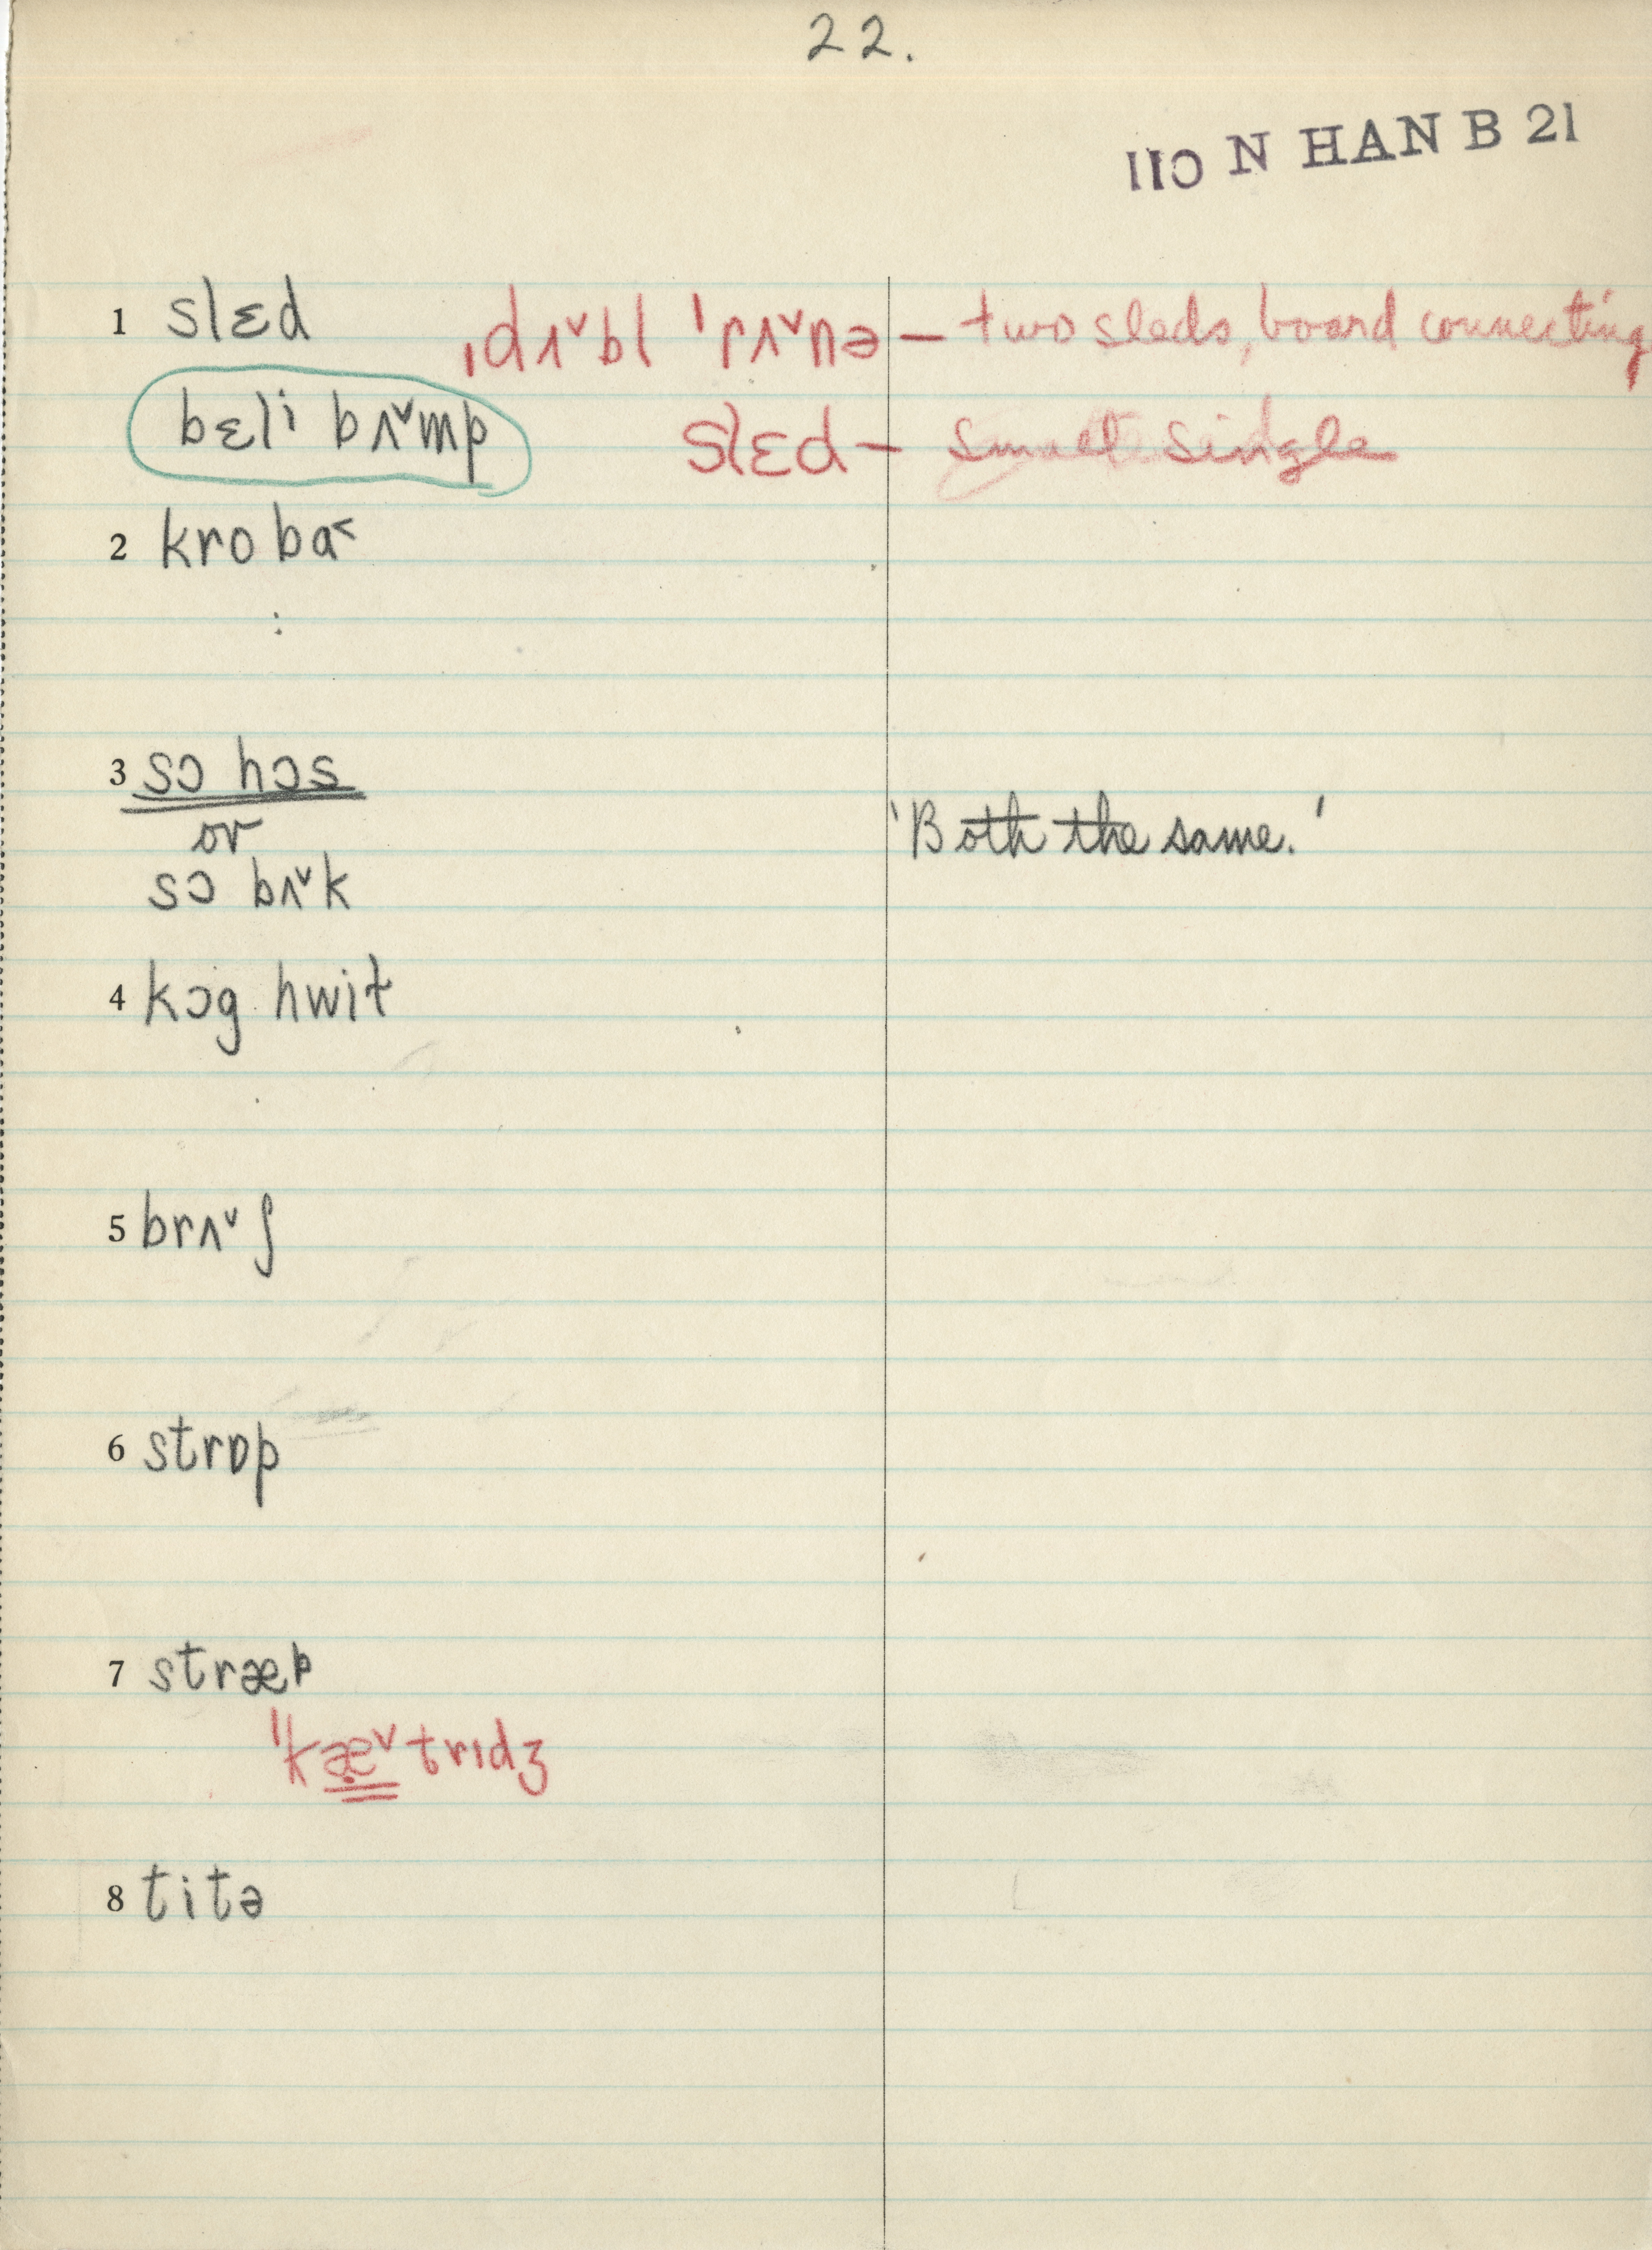 22.
110 N HAN B 21
1 slɛd ˌdʌ˅bl ˈrʌ˅nə – two sleds, board connecting
bɛli bʌ˅mp slɛd – small single
2 kro ba˂
3 sɔ hɔs
or
'Both the same.'
sɔ bʌ˅k
4 kɔg hwit
5 brʌ˅ʃ
6 strɒp
7 stræp
ˈkæ˅trɪdʒ
8 titə